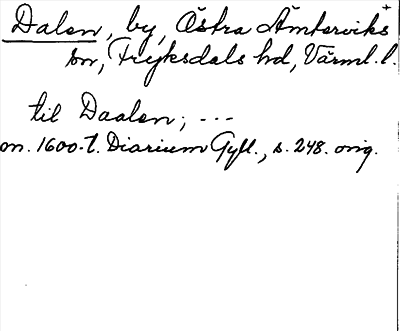 Dalen, by, Östra Ämterviks +
sn, Fryksdals hd, Värml. l.
til Daalen; ---
m. 1600-t. Diarium Gyll., s. 248. orig.